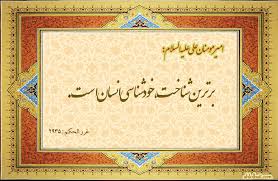 امیرمومنان علی علیه السلام:
برترین شناخت، خودشناسی انسان است.
غررالحکم: ۲۹۳۵